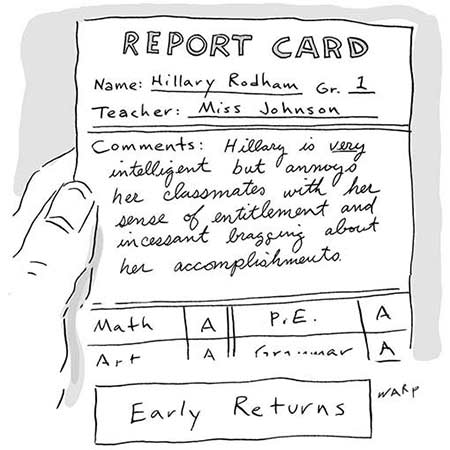 REPORT CARD
Name: Hillary Rodham Gr. 1
Teacher: Miss Johnson
Comments: Hillary is very
intelligent but annoys
her classmates with her
sense of entitlement and
incessant bragging about
her accomplishments.
Math A P.E. A
Art A Grammar A
Early Returns
WARP